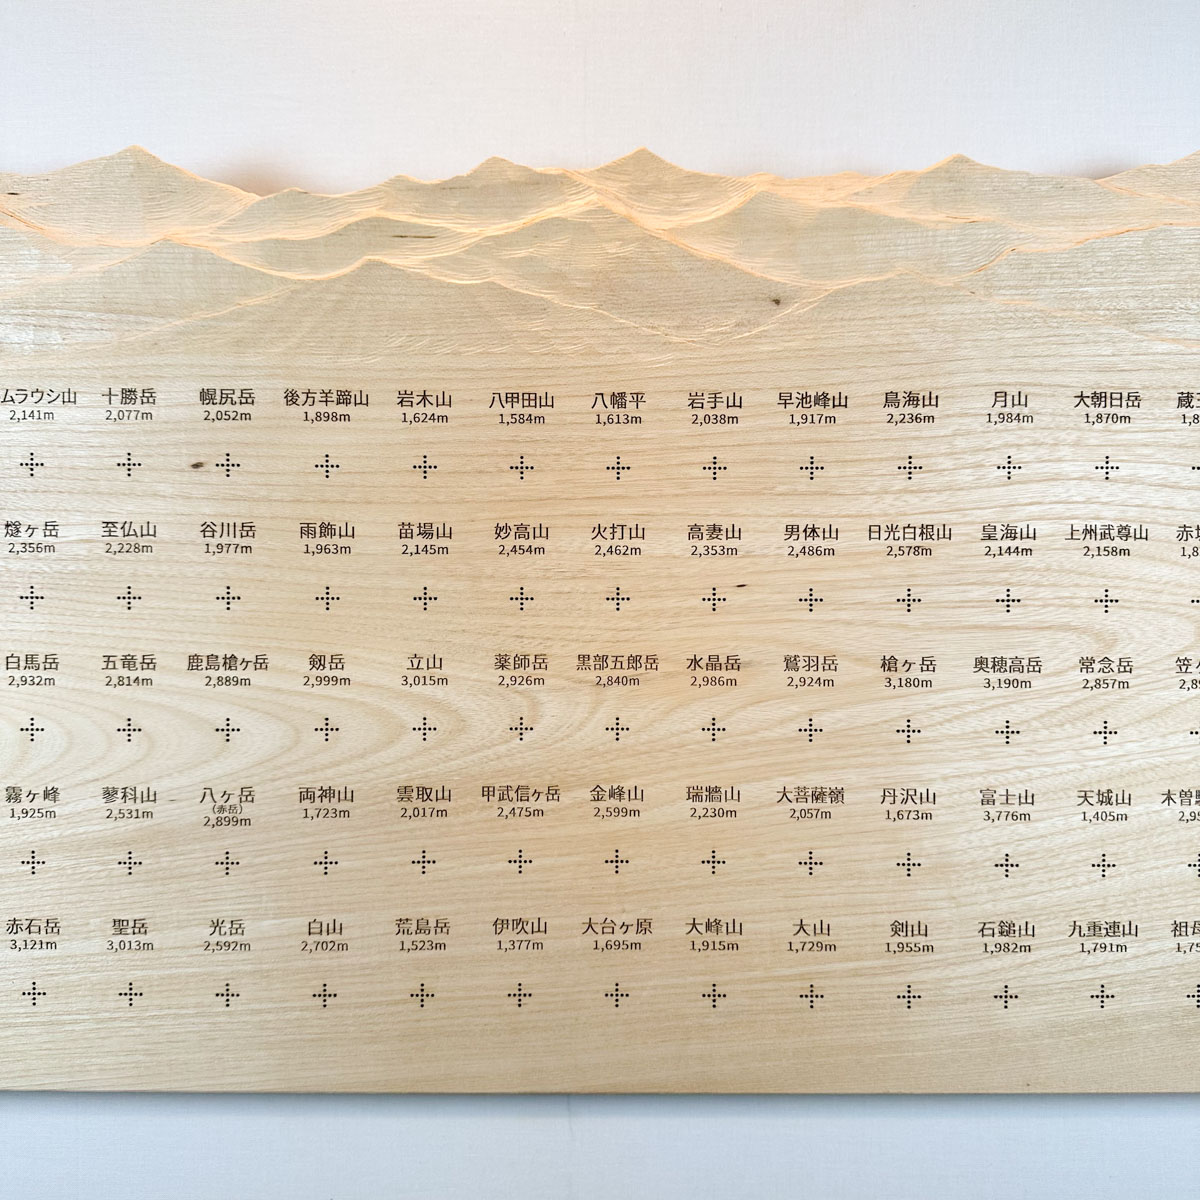 ムラウシ山 十勝岳 幌尻岳 後方羊蹄山 岩木山 八甲田山 八幡平 岩手山 早池峰山 鳥海山 月山 大朝日岳 蔵
2,141m 2,077m 2,052m 1,898m 1,624m 1,584m 1,613m 2,038m 1,917m 2,236m 1,984m 1,870m 1,8
燧ヶ岳 至仏山 谷川岳 雨飾山 苗場山 妙高山 火打山 高妻山 男体山 日光白根山 皇海山 上州武尊山 赤
2,356m 2,228m 1,977m 1,963m 2,145m 2,454m 2,462m 2,353m 2,486m 2,578m 2,144m 2,158m 1,8
白馬岳 五竜岳 鹿島槍ヶ岳 剱岳 立山 薬師岳 黒部五郎岳 水晶岳 鷲羽岳 槍ヶ岳 奥穂高岳 常念岳 笠
2,932m 2,814m 2,889m 2,999m 3,015m 2,926m 2,840m 2,986m 2,924m 3,180m 3,190m 2,857m 2,8
霧ヶ峰 蓼科山 八ヶ岳 両神山 雲取山 甲武信ヶ岳 金峰山 瑞牆山 大菩薩嶺 丹沢山 富士山 天城山 木曽
(赤岳)
1,925m 2,531m 2,899m 1,723m 2,017m 2,475m 2,599m 2,230m 2,057m 1,673m 3,776m 1,405m 2,9
赤石岳 聖岳 光岳 白山 荒島岳 伊吹山 大台ヶ原 大峰山 大山 剣山 石鎚山 九重連山 祖
3,121m 3,013m 2,592m 2,702m 1,523m 1,377m 1,695m 1,915m 1,729m 1,955m 1,982m 1,791m 1,75